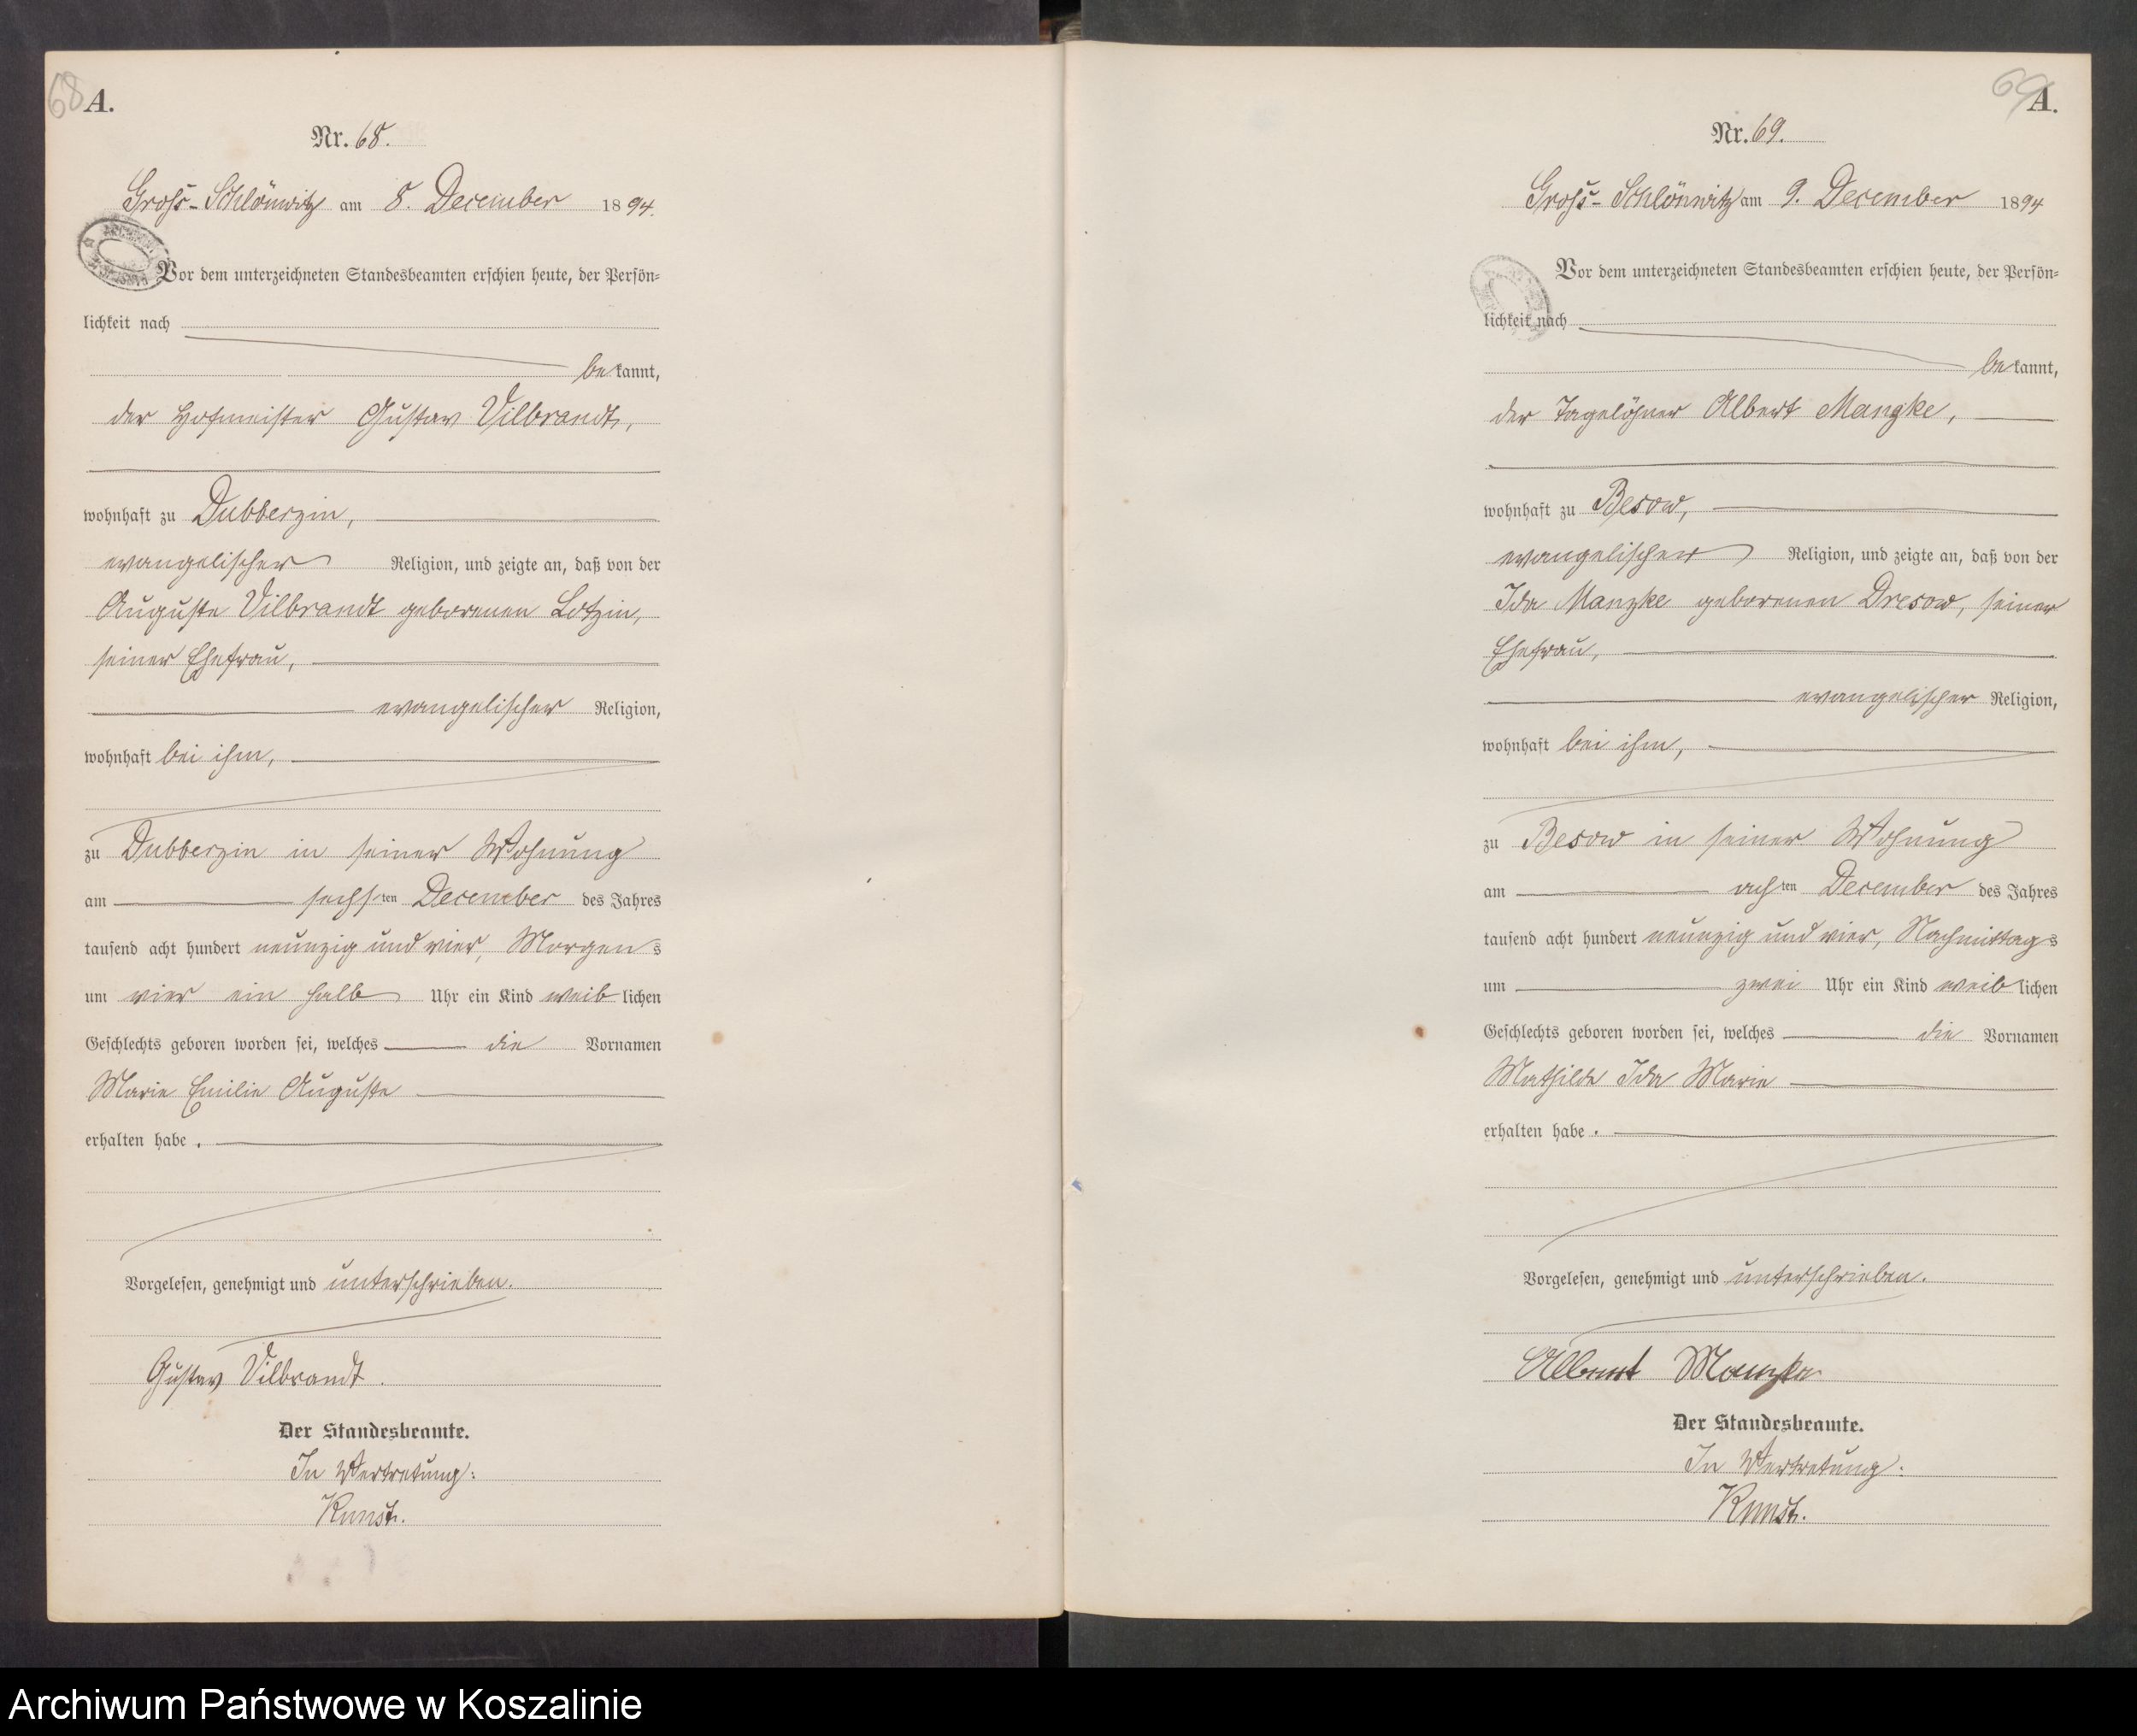 68
A.
Nr. 68.
Gross-Schlönwitz am 8. December 1894.
Vor dem unterzeichneten Standesbeamten erschien heute, der Persön-
lichkeit nach
bekannt,
der Hofmeister Gustav Vilbrandt,
wohnhaft zu Dubberzin,
evangelischer Religion, und zeigte an, daß von der
Auguste Vilbrandt geborenen Lotzin,
seiner Ehefrau,
evangelischer Religion,
wohnhaft bei ihm,
zu Dubberzin in seiner Wohnung
am sechsten December des Jahres
tausend acht hundert neunzig und vier, Morgens
um vier ein halb Uhr ein Kind weiblichen
Geschlechts geboren worden sei, welches die Vornamen
Marie Emilie Auguste
erhalten habe.
Vorgelesen, genehmigt und unterschrieben.
Gustav Vilbrandt.
Der Standesbeamte.
In Vertretung:
Kunst.
69
A.
Nr. 69.
Gross-Schlönwitz am 9. December 1894
Vor dem unterzeichneten Standesbeamten erschien heute, der Persön-
lichkeit nach
bekannt,
der Tagelöhner Albert Manzke,
wohnhaft zu Besow,
evangelischer Religion, und zeigte an, daß von der
Ida Manzke geborenen Dresow, seiner
Ehefrau,
evangelischer Religion,
wohnhaft bei ihm,
zu Besow in seiner Wohnung
am achten December des Jahres
tausend acht hundert neunzig und vier, Nachmittags
um zwei Uhr ein Kind weiblichen
Geschlechts geboren worden sei, welches die Vornamen
Mathilde Ida Marie
erhalten habe.
Vorgelesen, genehmigt und unterschrieben.
Albert Manzke
Der Standesbeamte.
In Vertretung:
Kunst.
Archiwum Państwowe w Koszalinie